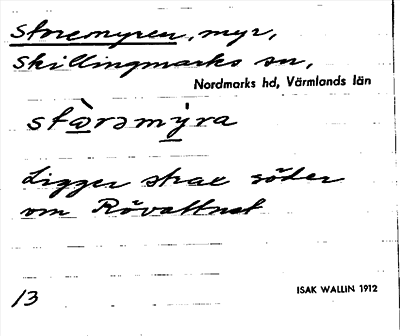 Storemyren, myr,
Skillingmarks sn,
Nordmarks hd, Värmlands län
stὼrəmýra
Ligger strax söder
om Rövattnet
13
ISAK WALLIN 1912